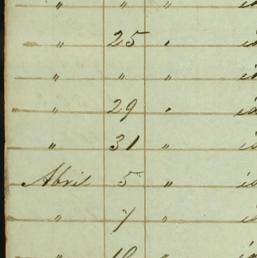 " " " id
" 25 " id
" " " id
" 29 " id
" 31 " id
Abril 5 " id
" 7 " id
" 10 "